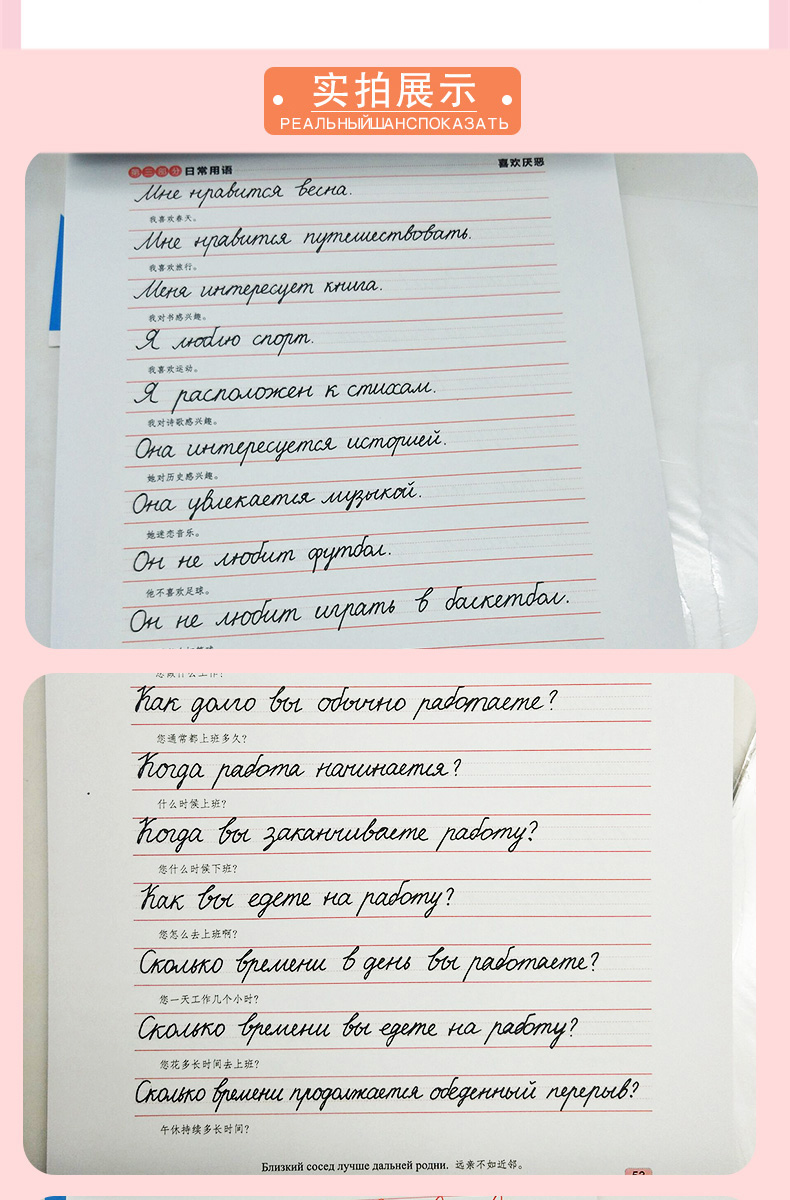 实拍展示
РЕАЛЬНЫЙШАНСПОКАЗАТЬ
第三部分 日常用语 喜欢厌恶
Мне нравится весна.
我喜欢春天。
Мне нравится путешествовать.
我喜欢旅行。
Меня интересует книга.
我对书感兴趣。
Я люблю спорт.
我喜欢运动。
Я расположен к стихам.
我对诗歌感兴趣。
Она интересуется историей.
她对历史感兴趣。
Она увлекается музыкой.
她迷恋音乐。
Он не любит футбол.
他不喜欢足球。
Он не любит играть в баскетбол.
Как долго вы обычно работаете?
您通常都上班多久?
Когда работа начинается?
什么时候上班?
Когда вы заканчиваете работу?
您什么时候下班?
Как вы едете на работу?
您怎么去上班啊?
Сколько времени в день вы работаете?
您一天工作几个小时?
Сколько времени вы едете на работу?
您花多长时间去上班?
Сколько времени продолжается обеденный перерыв?
午休持续多长时间?
Близкий сосед лучше дальней родни. 远亲不如近邻。